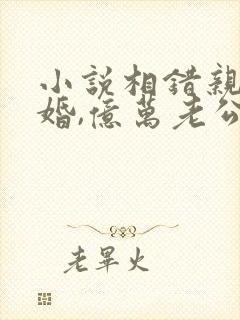 小説相錯親
婚,億萬老公
老畢火